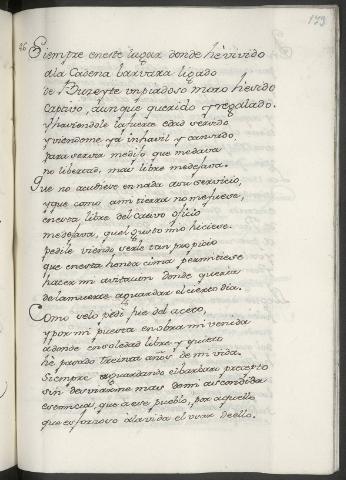 173
26 Siempre eneste lugar donde hè vivido
ala Cadena barvara ligado
de un piadoso moro hè sido
Captivo, aunque querido y regalado.
y haviendole la fuerte edad servido
y viendome yà inhavil y cansado
para servir me dijo que me dava
no libertad, mas libre me dejava.
Que no acudiese en nada a su servicio,
y que como a mi tierra no me fuese,
en esta libre del cautivo oficio
me dejava, que el gusto mio hiciese.
pedile viendo serle tan propicio
que en esta honda cima permitiese
hacer mi avitacion donde queria
de la muerte aguardar el cierto dia.
Como selo pedi fue del aceto,
y por mi puesta en obra mi venida
adonde en soledad libre y quieto
hè pasado treinta años de mi vida.
Siempre aguardando el barbaro precepto
sin desviarme mas de mi ascondida
estancia, que a ese pueblo, por aquello
que es forzoso a la vida el usar de ello.